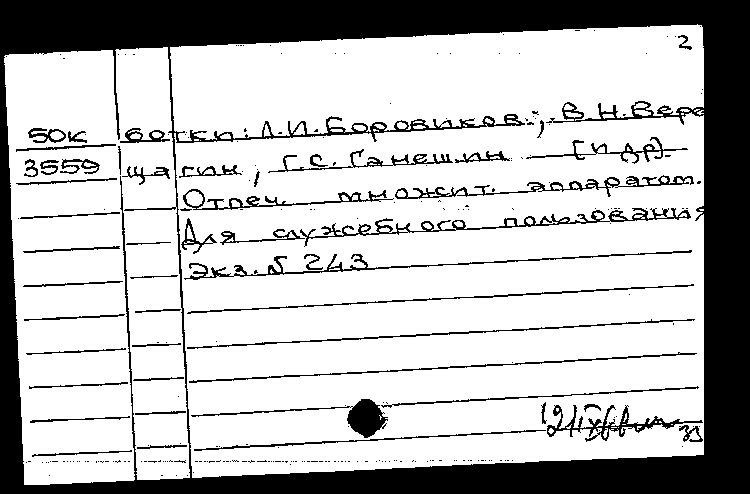 2
50К ботки: Л.И.Боровиков, В.Н.Вере
3559 щагин, Г.С. Ганешин [и др].
Отпеч. множит. аппаратом.
Для служебного пользования
Экз. N 243